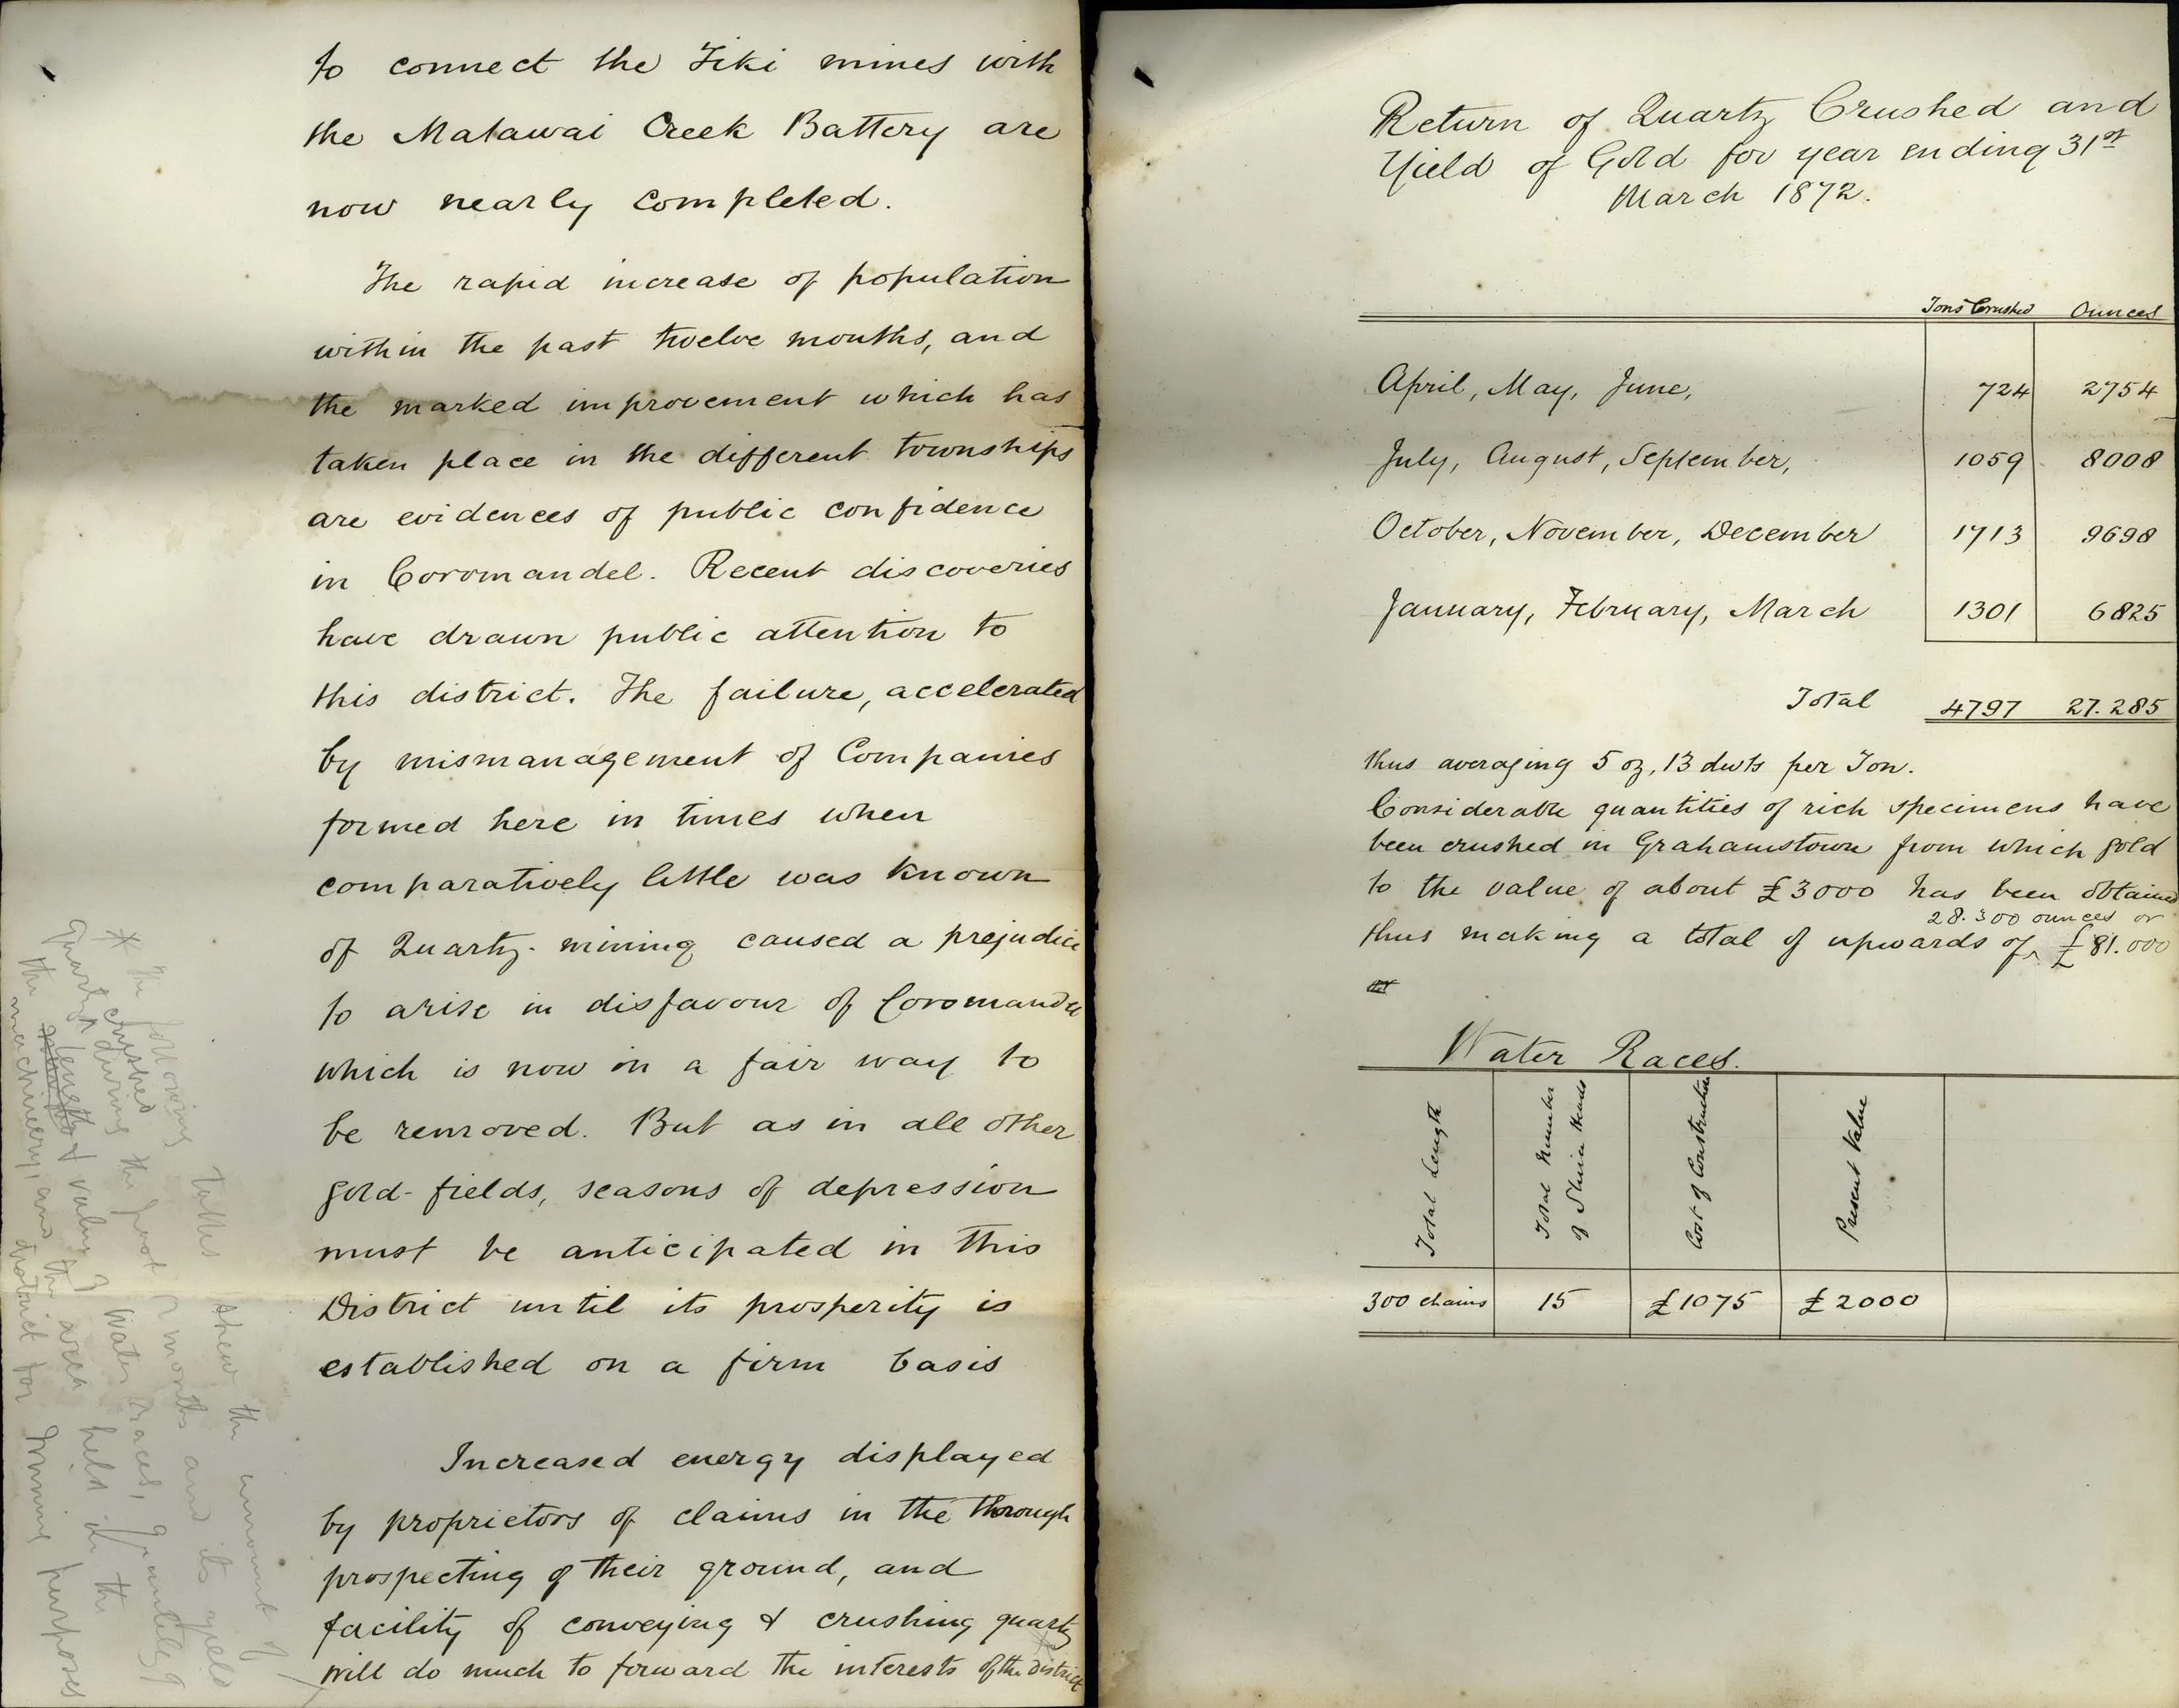 to connect the Tiki mines with
the Matawai Creek Battery are
now nearly completed.
The rapid increase of population
within the past twelve months, and
the marked improvement which has
taken place in the different townships
are evidences of public confidence
in Coromandel. Recent discoveries
have drawn public attention to
this district. The failure, accelerated
by mismanagement of Companies
formed here in times when
comparatively little was known
of Quartz-mining caused a prejudice
to arise in disfavour of Coromandel
which is now in a fair way to
be removed. But as in all other
gold-fields, seasons of depression
must be anticipated in this
District until its prosperity is
established on a firm basis
Increased energy displayed
by proprietors of claims in the thorough
prospecting of their ground, and
facility of conveying & crushing quartz
will do much to forward the interests of the district
* The following tables shew the amount of
quartz crushed during the past 12 months and its yield
the length & value of Water races, quantity of
machinery, and the area held in the
district for mining purposes
Return of Quartz Crushed and
Yield of Gold for year ending 31st
March 1872.
Tons Crushed Ounces
April, May, June, 724 2754
July, August, September, 1059 8008
October, November, December 1713 9698
January, February, March 1301 6825
Total 4797 27.285
thus averaging 5 oz, 13 dwts per Ton.
Considerable quantities of rich specimens have
been crushed in Grahamstown from which gold
to the value of about £3000 has been obtained
28.300 ounces or
thus making a total of upwards of £81.000
Water Races.
Total Length
Total Number
of Sluice Heads
Cost of Construction
Present Value
300 chains 15 £1075 £2000